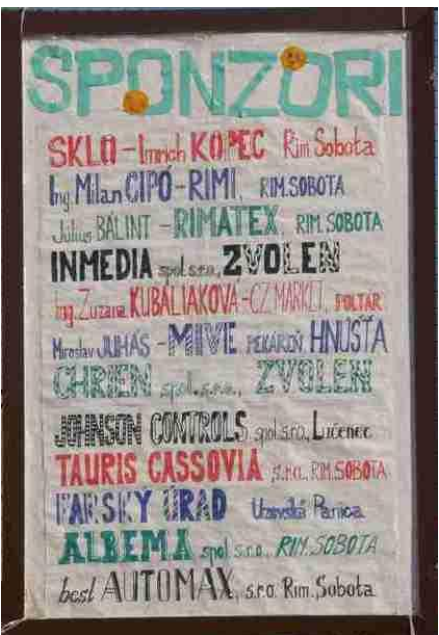 SPONZORI
SKLO - Imrich KOPEC Rim. Sobota
Ing. Milan CIPÓ - RIMI, RIM. SOBOTA
Július BÁLINT - RIMATEX, RIM. SOBOTA
INMEDIA spol. s r.o., ZVOLEN
Ing. Zuzana KUBALIAKOVÁ - CZ MARKET, POLTÁR
Miroslav JUHÁS - MIVE PEKÁREŇ HNÚŠŤA
CHRIEN spol. s r.o., ZVOLEN
JOHNSON CONTROLS spol. s r.o., Lučenec
TAURIS CASSOVIA s.r.o., RIM. SOBOTA
FARSKY ÚRAD Uzovská Panica
ALBEMA spol. s r.o., RIM. SOBOTA
best AUTOMAX, s.r.o. Rim. Sobota